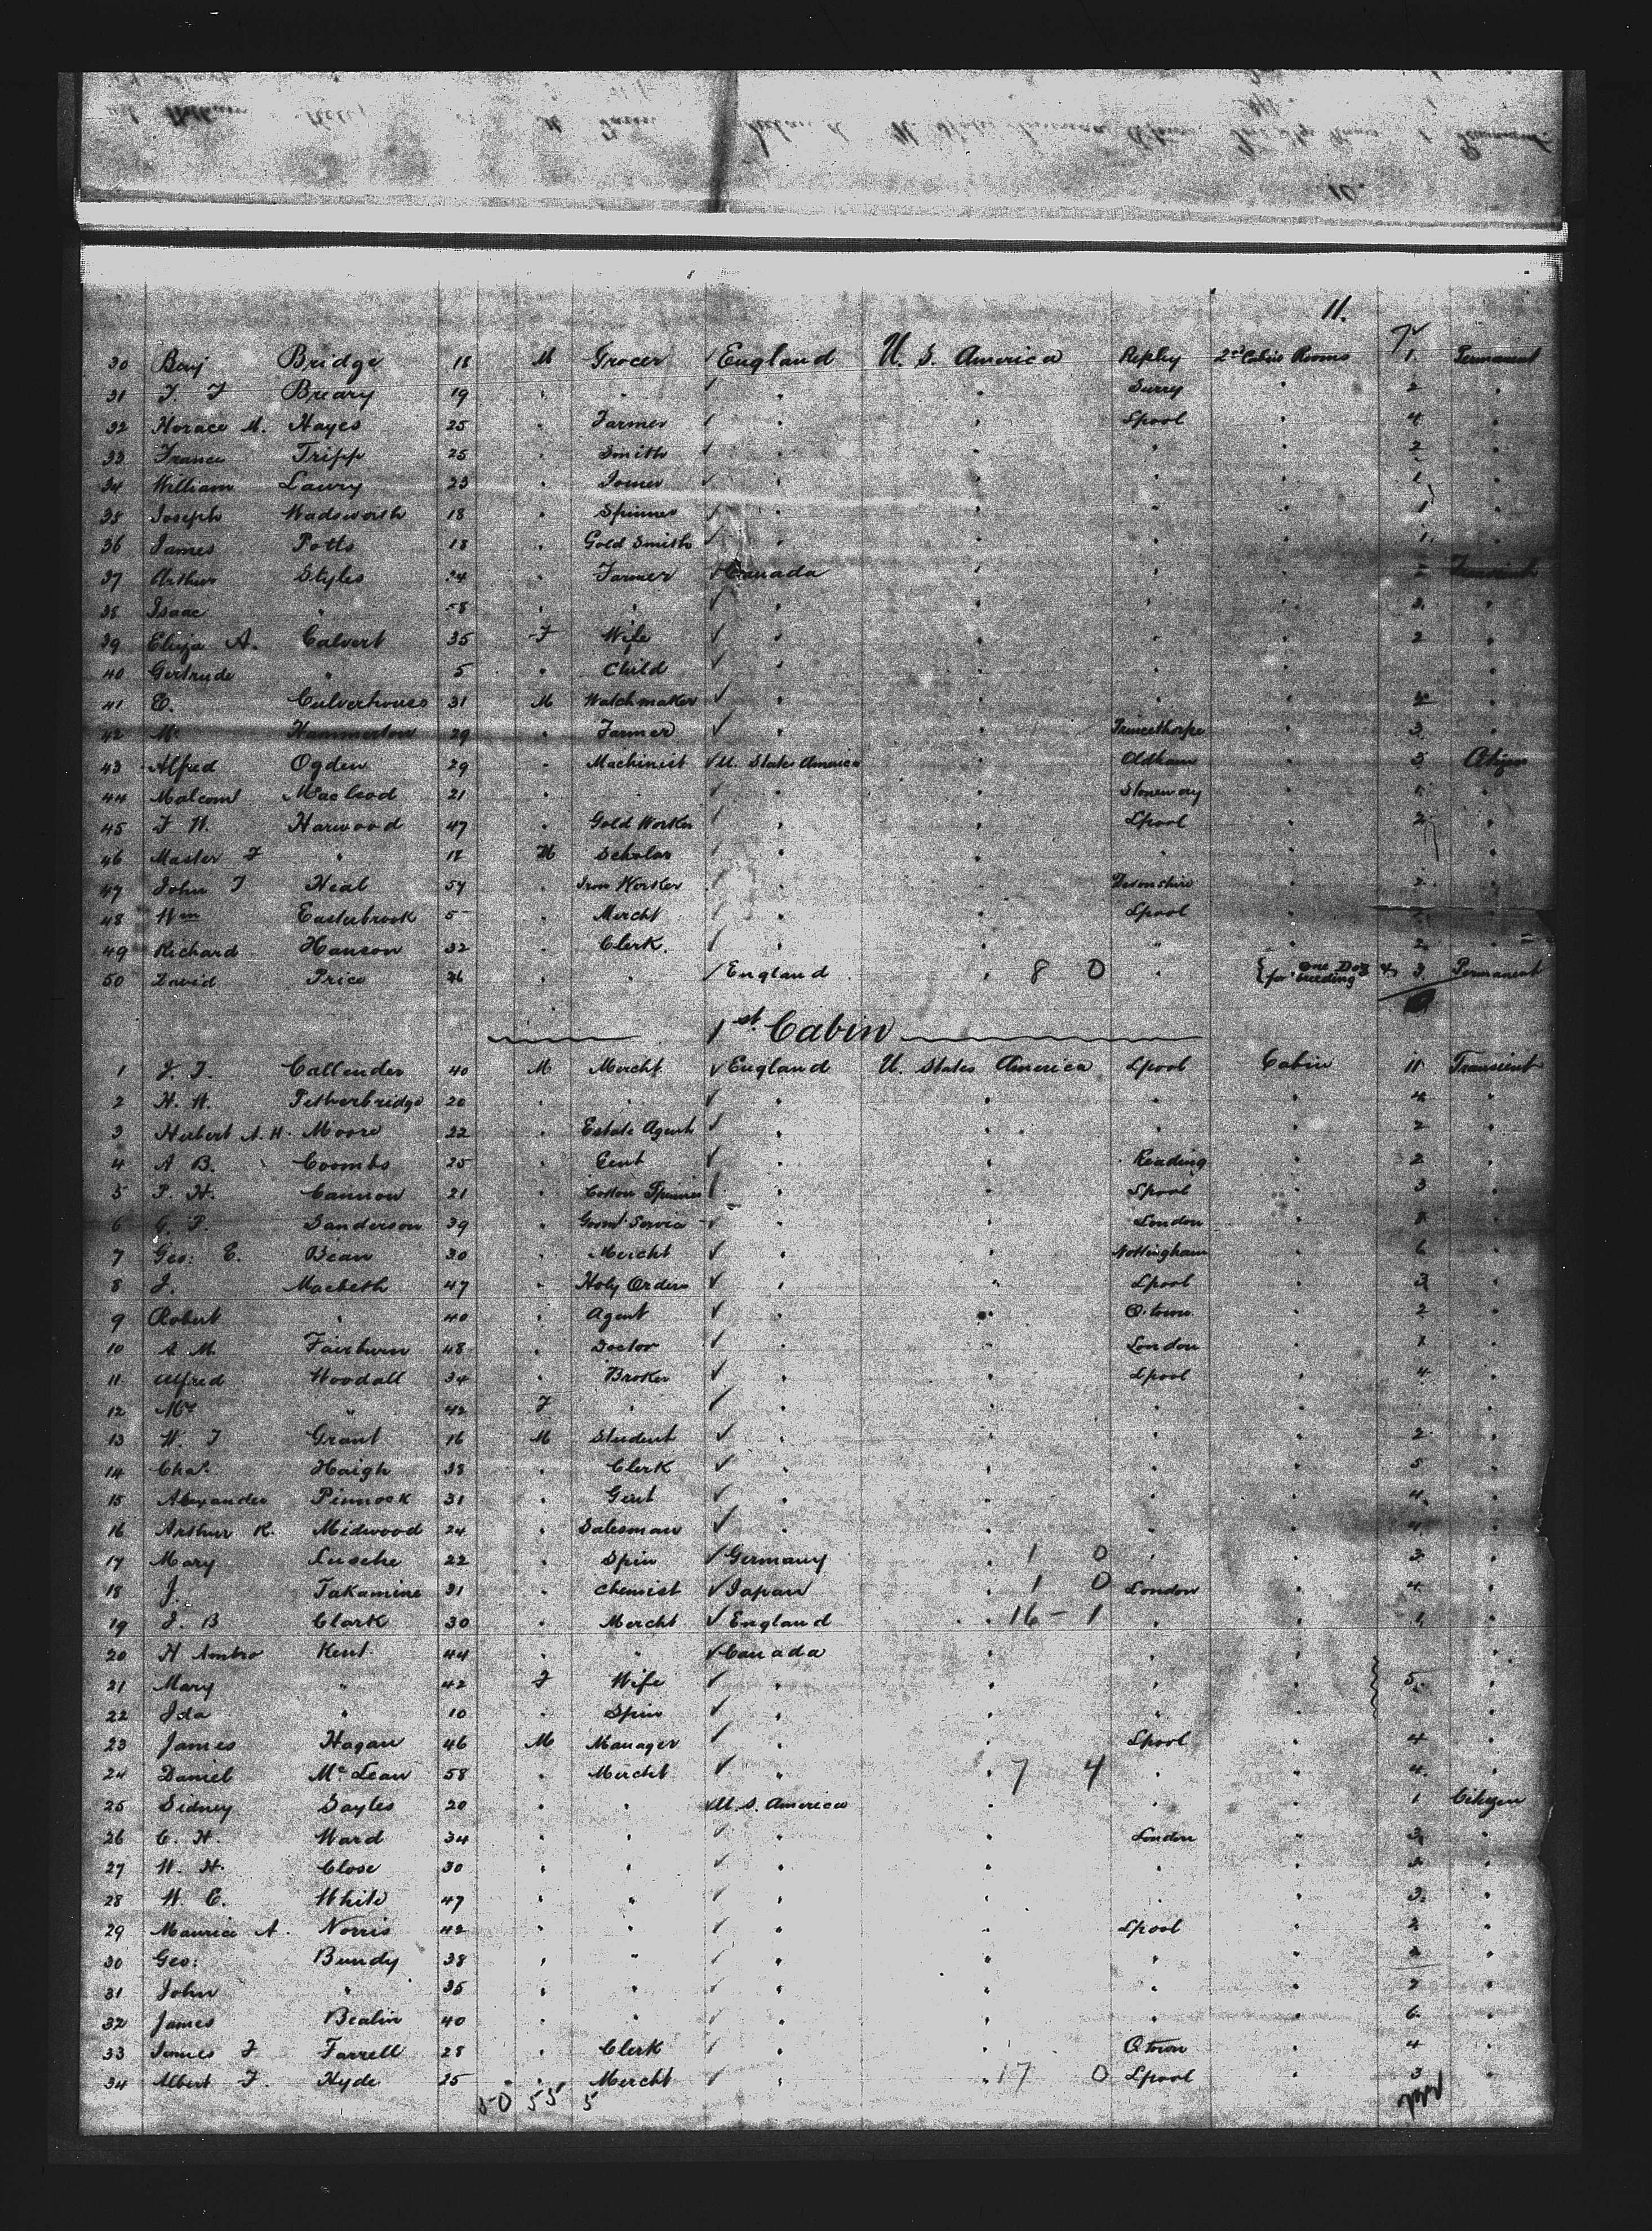 11.
30 Benj Bridge 18 M Grocer ✓ England U. S. America Repley 2nd Cabin Rooms 1 Permanent
31 J. J Breary 19 " " ✓ " " Surry " 2 "
32 Horace M. Hayes 25 " Farmer ✓ " " Lpool " 4 "
33 France Tripp 25 " Smith ✓ " " " " 2 "
34 William Lawry 23 " Joiner ✓ " " " " 1 "
35 Joseph Wadsworth 18 " Spinner ✓ " " " " 1 "
36 James Potts 18 " Gold Smith ✓ " " " " 1 "
37 Arthur Styles 24 " Farmer ✓ Canada " " " 2
38 Isaac " 58 " " ✓ " " " " 2 "
39 Eliza A. Calvert 35 F Wife ✓ " " " " 2 "
40 Gertrude " 5 " Child ✓ " " " " "
41 E. Culverhouse 31 M Watchmaker ✓ " " " " 2 "
42 W. Hammerton 29 " Farmer ✓ " " " 3 "
43 Alfred Ogden 29 " Machinist ✓ U. States America " Oldham " 3 Citizen
44 Malcom Macleod 21 " " ✓ " " Stoneway " 1 "
45 J. W. Harwood 47 " Gold Worker ✓ " " Lpool " 2 "
46 Master F " 12 M Scholar ✓ " " " " "
47 John T Heal 54 " Iron Worker ✓ " " Devonshire " 2 "
48 Wm Easterbrook " Mercht ✓ " " Lpool " 2 "
49 Richard Hanson 32 " Clerk ✓ " " " " 2 "
50 David Price 26 " " ✓ England " 8 0 " { one Dog for breeding 3 Permanent
1st Cabin
1 J. T. Callender 40 M Mercht ✓ England U. States America Lpool Cabin 11 Transient
2 H. W. Petherbridge 20 " " ✓ " " " " 4 "
3 Herbert A. H. Moore 22 " Estate Agent ✓ " " " " 2 "
4 A B. Coombs 25 " Gent ✓ " " Reading " 2 "
5 P. H. Cannon 21 " Cotton Spinner ✓ " " Lpool " 3 "
6 G. P. Sanderson 39 " Govmt Service ✓ " " London " "
7 Geo: E. Bean 30 " Mercht ✓ " " Nottingham " 6 "
8 J. Macbeth 47 " Holy Orders ✓ " " Lpool " 3 "
9 Robert " 40 " Agent ✓ " " Q.town " 2 "
10 A M Fairburn 48 " Doctor ✓ " " London " 1 "
11 Alfred Woodall 34 " Broker ✓ " " Lpool " 4 "
12 Mrs " 42 F " ✓ " " " " "
13 W. J Grant 16 M Student ✓ " " " " 2 "
14 Chas. Haigh 38 " Clerk ✓ " " " " 5 "
15 Alexander Pinnock 31 " Gent ✓ " " " " 4 "
16 Arthur K. Midwood 24 " Salesman ✓ " " " " 4 "
17 Mary Lusche 22 " Spin ✓ Germany " 1 0 " " 3 "
18 J. Takamine 31 " Chemist ✓ Japan " 1 0 London " 4 "
19 J. B Clark 30 " Mercht ✓ England " 16 - 1 " " 1 "
20 H Ambro Kent 44 " " ✓ Canada " " " "
21 Mary " 42 F Wife ✓ " " " " 5 "
22 Ida " 10 " Spin ✓ " " " " "
23 James Hagan 46 M Manager ✓ " " Lpool " 4 "
24 Daniel McLean 58 " Mercht ✓ " " 7 4 " " 4 "
25 Sidney Sayles 20 " " ✓ U. S. America " " " 1 Citizen
26 C. H. Ward 34 " " ✓ " " London " 3 "
27 W. H. Close 30 " " ✓ " " " " 2 "
28 W. E. White 47 " " ✓ " " " " 3 "
29 Maurice A. Norris 42 " " ✓ " " Lpool " 2 "
30 Geo: Bundy 38 " " ✓ " " " " 2 "
31 John " 35 " " ✓ " " " " 2 "
32 James Bealin 40 " " ✓ " " " " 6 "
33 James F Farrell 28 " Clerk ✓ " " Q town " 4 "
34 Albert F. Hyde 25 " Mercht ✓ " " 17 0 Lpool " 3 "
50 55 5